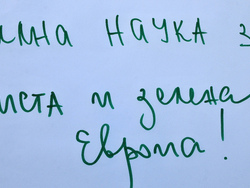 НАУКА З
ИСТА и зелена
Европа!